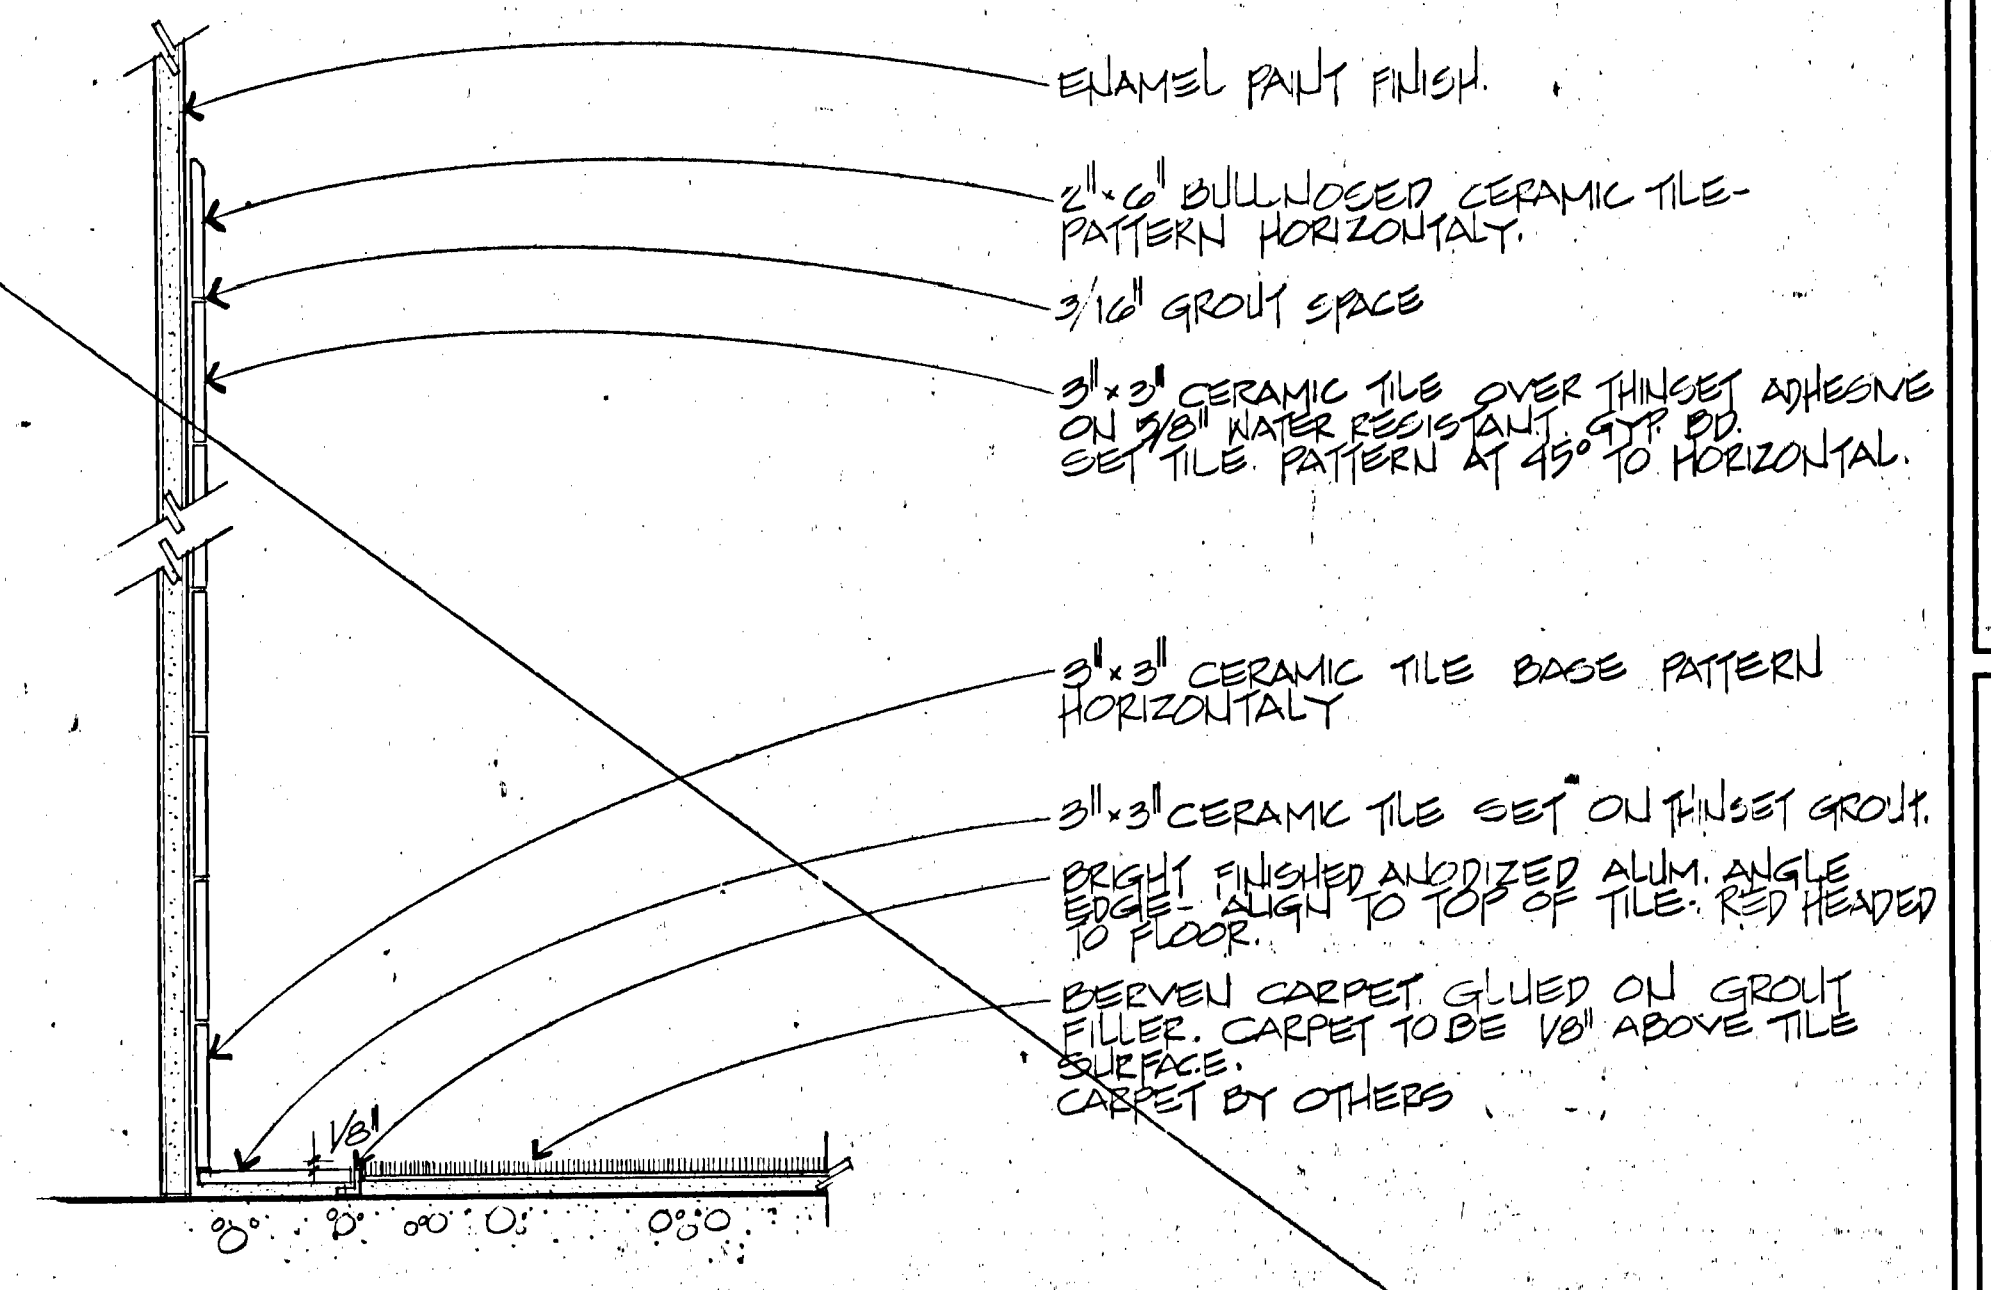 ENAMEL PAINT FINISH.
2"x6" BULLNOSED CERAMIC TILE-
PATTERN HORIZONTALY.
3/16" GROUT SPACE
3"x3" CERAMIC TILE OVER THINSET ADHESIVE
ON 5/8" WATER RESISTANT GYP. BD.
SET TILE PATTERN AT 45° TO HORIZONTAL.
3"x3" CERAMIC TILE BASE PATTERN
HORIZONTALY
3"x3" CERAMIC TILE SET ON THINSET GROUT.
BRIGHT FINISHED ANODIZED ALUM. ANGLE
EDGE- ALIGN TO TOP OF TILE. RED HEADED
TO FLOOR.
BERVEN CARPET GLUED ON GROUT
FILLER. CARPET TO BE 1/8" ABOVE TILE
SURFACE.
CARPET BY OTHERS
1/8"